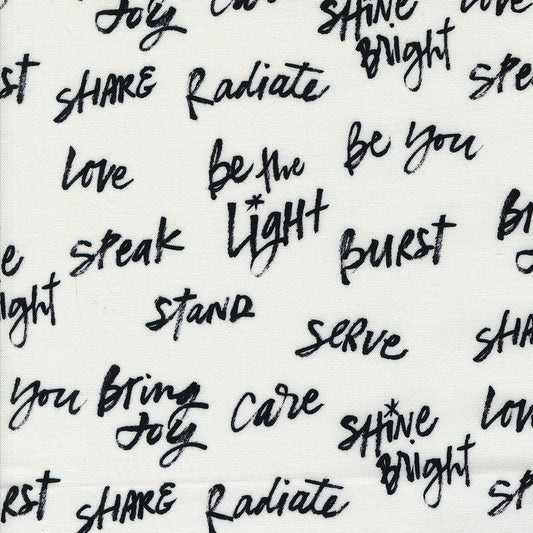 Joy Care SHINE Love
Bright
ST SHARE Radiate Spe
Love Be the Be You
Light
e Speak BURST Br
ight STAND
Serve SHA
You Bring Care SHINE Lov
Joy Bright
RST SHARE Radiate Spe